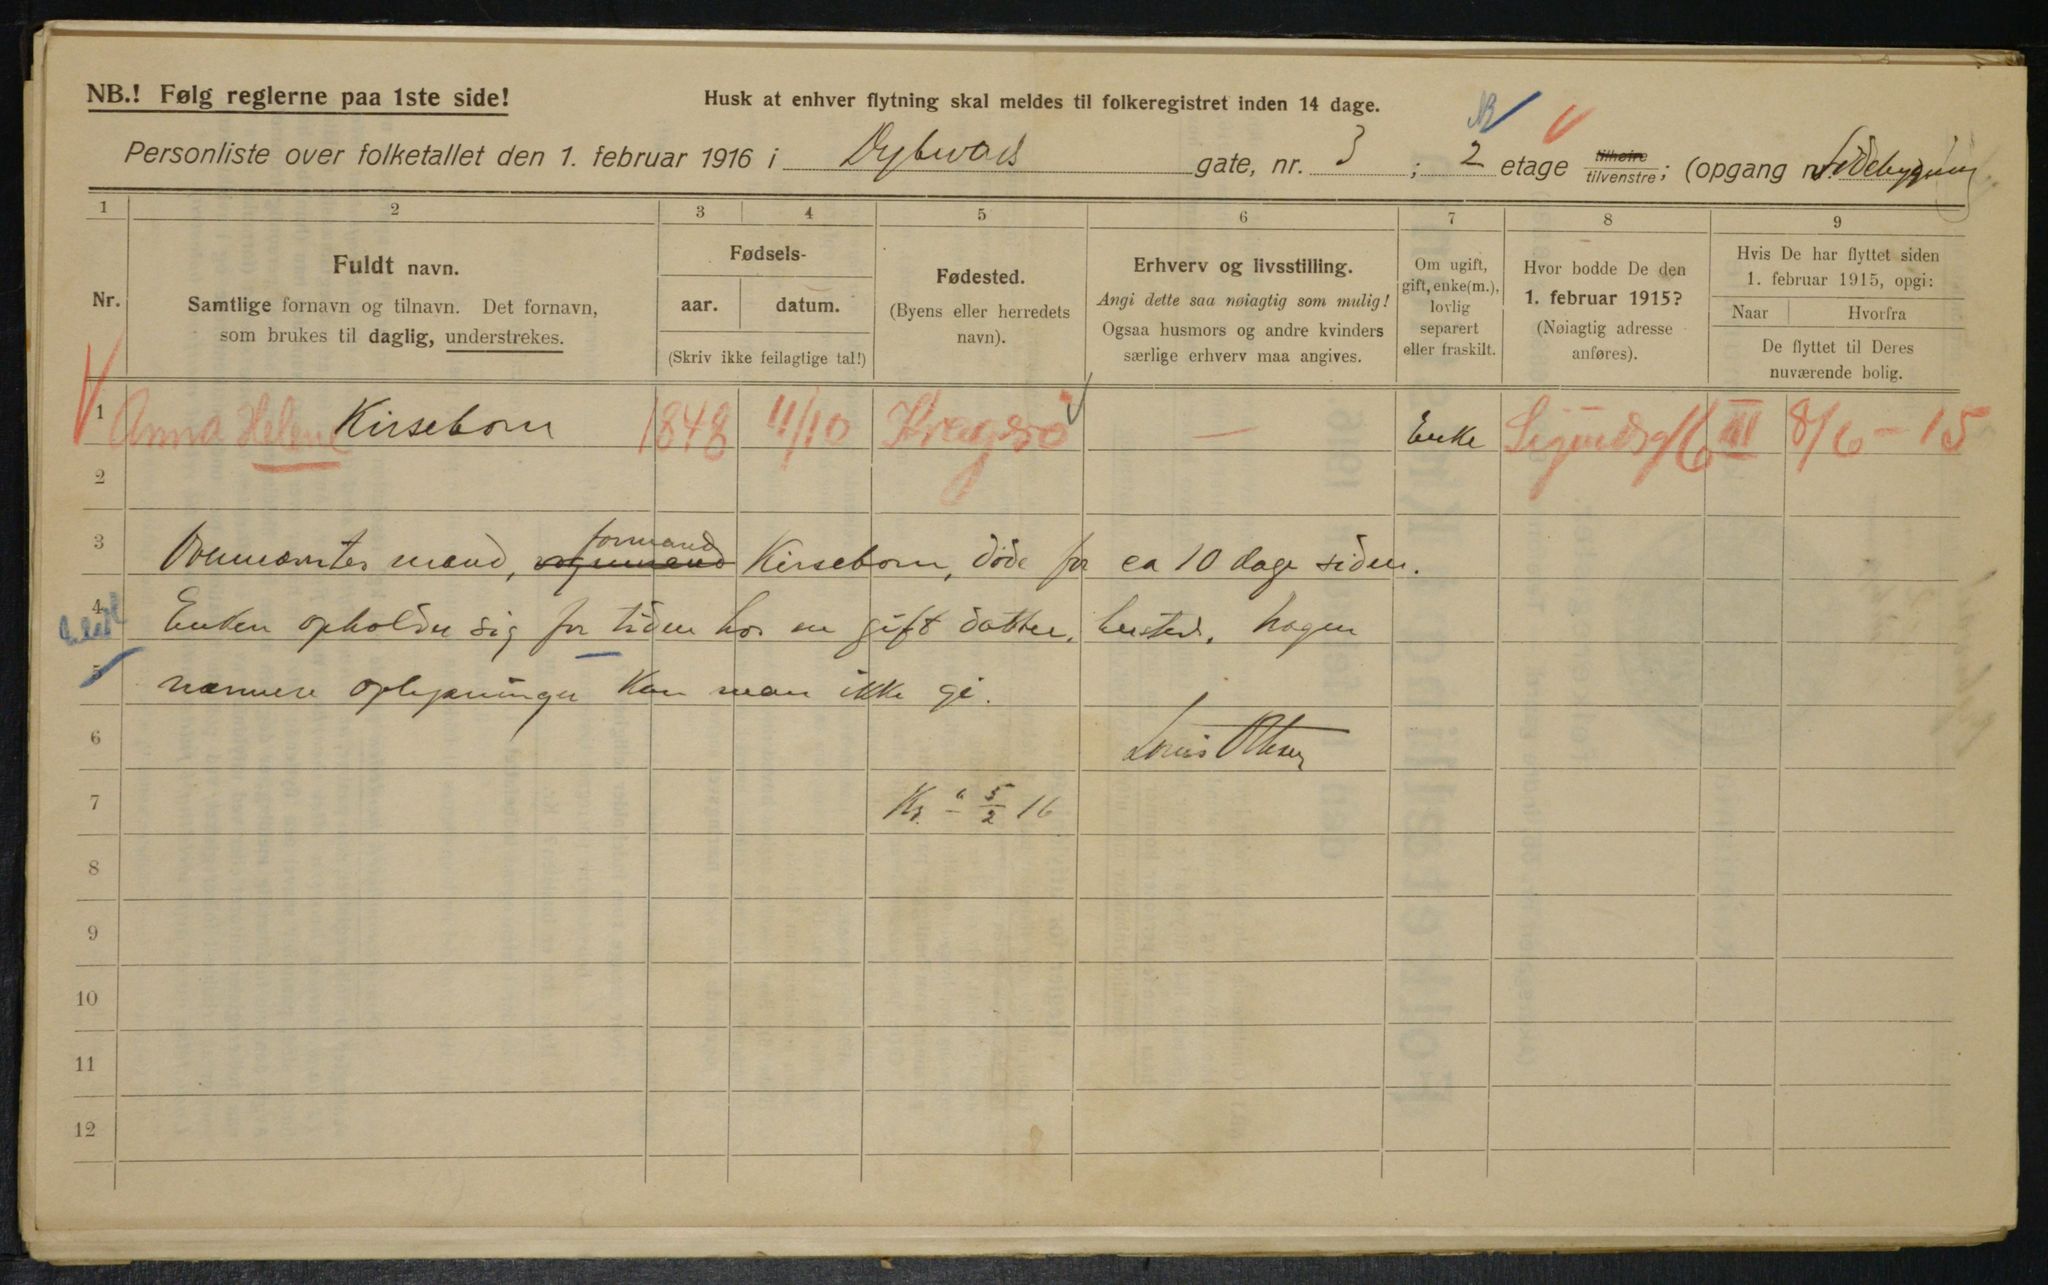 NB.! Følg reglerne paa 1ste side!
Husk at enhver flytning skal meldes til folkeregistret inden 14 dage.
Personliste over folketallet den 1. februar 1916 i Dybwads gate, nr. 3 ; 2 etage tilhøire tilvenstre; (opgang nr. Sidebygning
1 2 3 4 5 6 7 8 9
Nr.
Fuldt navn.
Samtlige fornavn og tilnavn. Det fornavn,
som brukes til daglig, understrekes.
Fødsels-
aar. datum.
(Skriv ikke feilagtige tal!)
Fødested.
(Byens eller herredets
navn).
Erhverv og livsstilling.
Angi dette saa nøiagtig som mulig!
Ogsaa husmors og andre kvinders
særlige erhverv maa angives.
Om ugift,
gift, enke(m.),
lovlig
separert
eller fraskilt.
Hvor bodde De den
1. februar 1915?
(Nøiagtig adresse
anføres).
Hvis De har flyttet siden
1. februar 1915, opgi:
Naar Hvorfra
De flyttet til Deres
nuværende bolig.
1 Anna Helene Kirsebom 1848 11/10 Kragerø — Enke Sigurdsg 16 III 8/6 - 15
2
formand
3 Ovennævntes mand, Kirsebom, døde for ca 10 dage siden.
4 Enken opholder sig for tiden hos en gift datter, . Nogen
5 nærmere oplysninger kan man ikke gi.
6 Louis Olsen
7 Kr. a 5/2 16
8
9
10
11
12